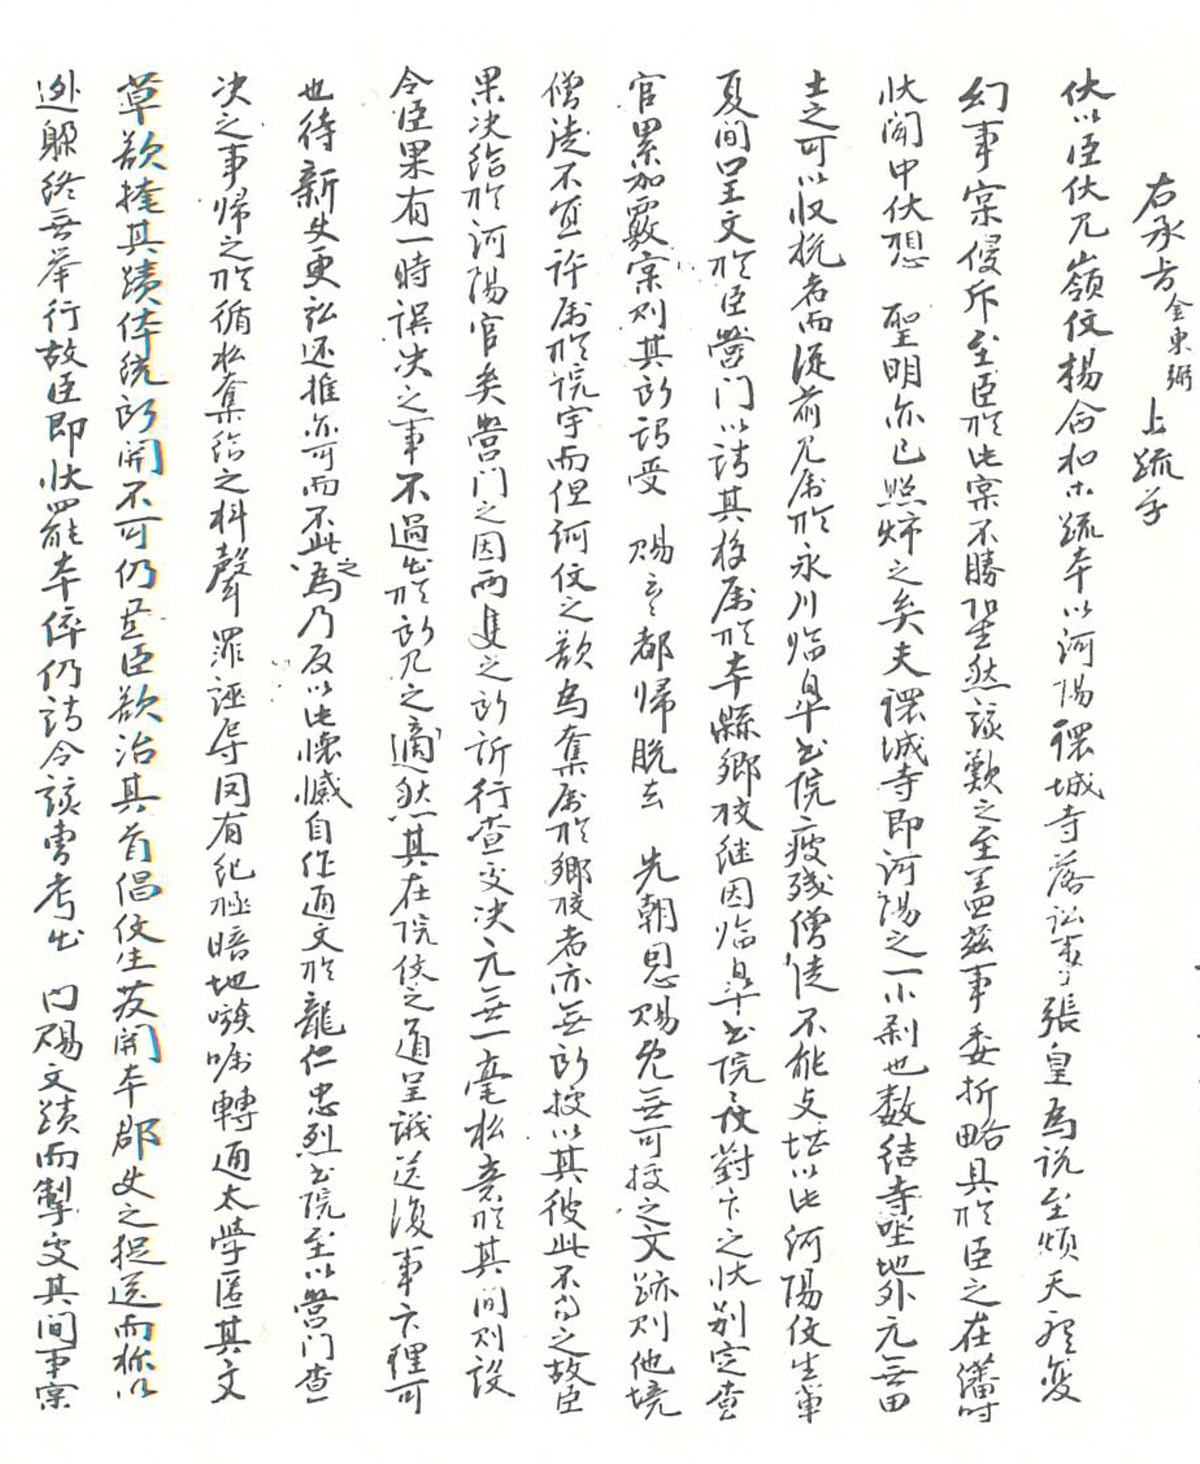 右承旨金東弼上疏草
伏以臣伏見嶺儒楊命和等疏本以河陽環城寺落訟事張皇為説至煩天聽变
幻事案侵斥至臣於此案不勝瞿然該歎之至盖玆事委折略具於臣之在藩時
狀聞中伏想 聖明亦已照燭之矣夫環城寺即河陽之一小刹也数結寺垈地外元無田
土之可以収挽者而從前見属於永川臨皐書院疲残僧徒不能支堪以此河陽仗生輩
夏間呈文於臣營门以請其移属於本縣鄕校継因臨皐書院儒對卞之狀別定査
官累加覈案則其所謂受 賜之言都帰脱空 先朝恩賜既無可按之文跡則他境
僧徒不宜許属於院宇而但河儒之欲為奪属於鄕校者亦無所按以其彼此不得之故臣
果决給於河陽官矣營门之因两隻之所訴行査交决元無一毫私意於其间則設
令臣果有一時误决之事不過出於所见之適然其在院儒之道呈議送復事卞理可
也待新使更訟还推亦可而不此之為乃反以此懷憾自作通文於龍仁忠烈書院至以營门査
决之事帰之於循私奪給之科聲罪誣辱罔有紀極暗地嗾囑轉通太學匿其文
草欲掩其蹟体统所関不可仍置臣欲治其首倡儒生茇関本郡使之捉送而称以
逃躱終無举行故臣即狀罷本倅仍請令該曹考出 内賜文蹟而掣变其间事案